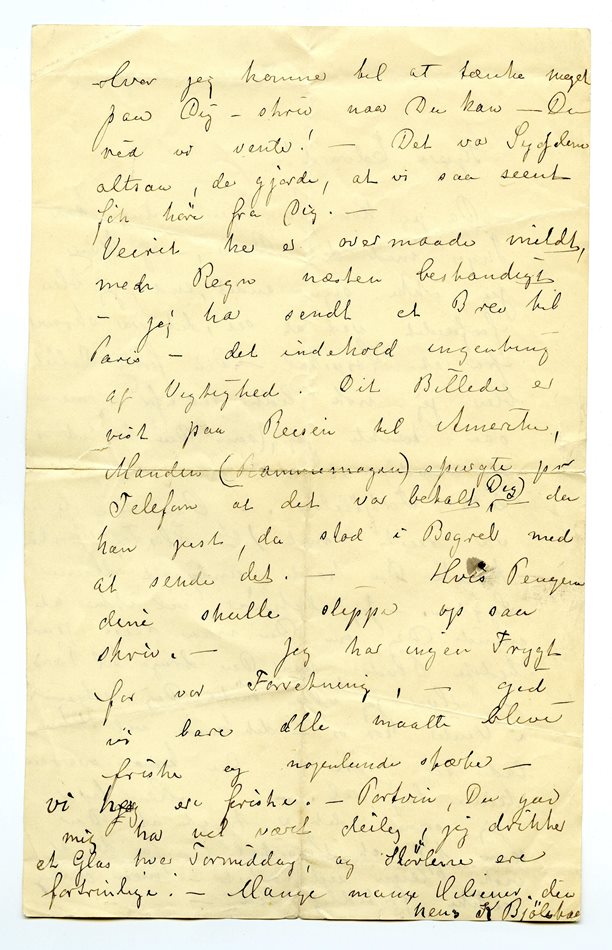 Hvor jeg komme til at tænke meget
paa Dig – skriv naar Du kan – Du
véd vi vente! – Det va Sygdom
altsaa, de gjorde, at vi saa seent
fik høre fra Dig. –
Veiret he er overmaade mildt,
medn Regn næsten bestandigt
– jeg ha sendt et Brev til
Paris – det indehold ingenting
af Vigtighed. Dit Billede er
vist paa Reisen til Amerika,
Manden (Rammemagen) spurgte pr
Telefon at det var betalt Dig) da
han just, da stod i Begreb med
at sende det. – Hvis Pengene
dine skulle slippe op saa
skriv. – Jeg har ingen Frygt
for vor Forretning, – gid
vi bare alle maatte blive
friske og nogenlunde stærke –
vi her ere friske. – Portvin, Du gav
mig ha vel været deilig, jeg drikker
et Glas hver Formiddag, og Støvlerne ere
fortrinlige! – Mange mange Hilsener, din
hens K Bjöl